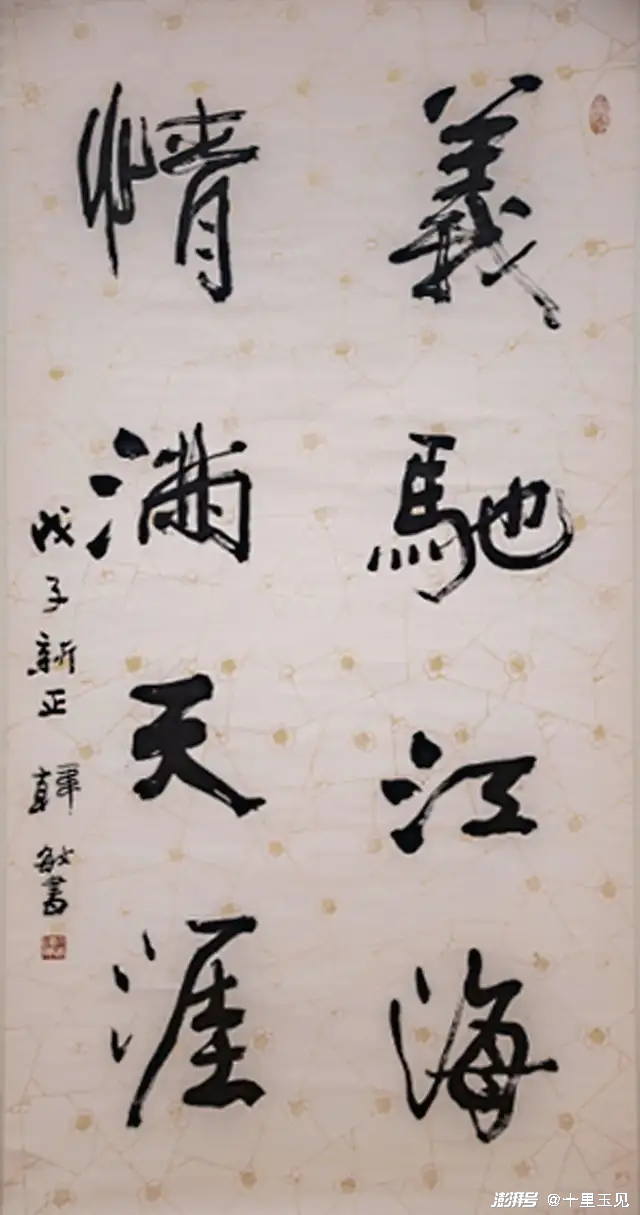 義馳江海
情滿天涯
戊子新正 韓敏書
澎湃号 @十里玉见